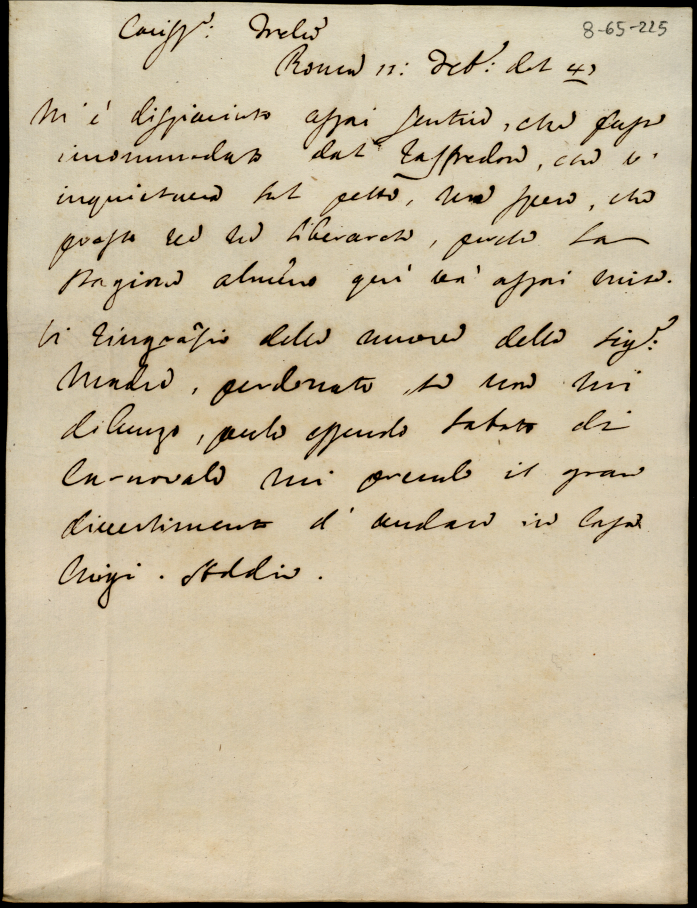 8-65-225
Cariss.º: Frelo
Roma 11: Feb.º: del 47
Mi è dispiaciuto assai sentire, che foste
incommodato dal Raffredore, che v'
inquietava sul petto, ma spero, che
presto ve ne liberarete, perche la
stagione almeno quì và assai mite.
Vi ringrazio delle nuove della Sig.ª:
Madre, perdonate se non mi
dilungo, perche essendo Sabato di
Carnovale mi prende il gran
divertimento d'andare in Casa
Chigi. Addio.